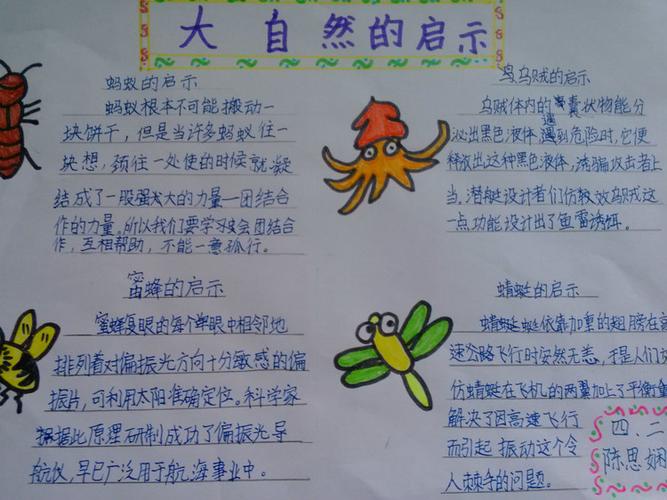 大自然的启示
蚂蚁的启示
蚂蚁根本不可能搬动一
块饼干，但是当许多蚂蚁往一
块想，须往一处使的时候就凝
结成了一股强大的力量—团结合
作的力量。所以我们要学习会团结合
作，互相帮助，不能一意孤行。
乌贼的启示
乌贼体内的囊状物能分
泌出黑色液体，遇到危险时，它便
释放出这种黑色液体，诱骗攻击者上
当。潜艇设计者们仿效乌贼这
一点功能设计出了鱼雷诱饵。
蜜蜂的启示
蜜蜂复眼的每个单眼中相邻地
排列着对偏振光方向十分敏感的偏
振片，可利用太阳准确定位。科学家
据据此原理研制成功了偏振光导
航仪，早已广泛用于航海事业中。
蜻蜓的启示
蜻蜓蜓依靠加重的翅膀在高
速公路飞行时安然无恙，于是人们
仿蜻蜓在飞机的两翼加上了平衡重
解决了因高速飞行
而引起振动这个令
人棘手的问题。
四、二
陈思娴